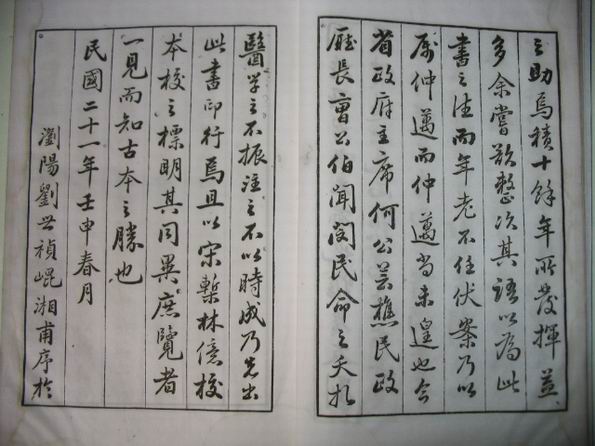 之助焉積十餘年所發揮益
多余嘗欲整次其語以為此
書之注而年老不任伏案乃以
屬仲邁而仲邁尚未遑也會
省政府主席何公芸樵民政
廳長曾公伯聞閔民命之夭札
醫学之不振注之不以時成乃先出
此書印行焉且以宋槧林億校
本校之標明其同異庶覽者
一見而知古本之勝也
民國二十一年壬申春月
瀏陽劉世禎崐湘甫序於